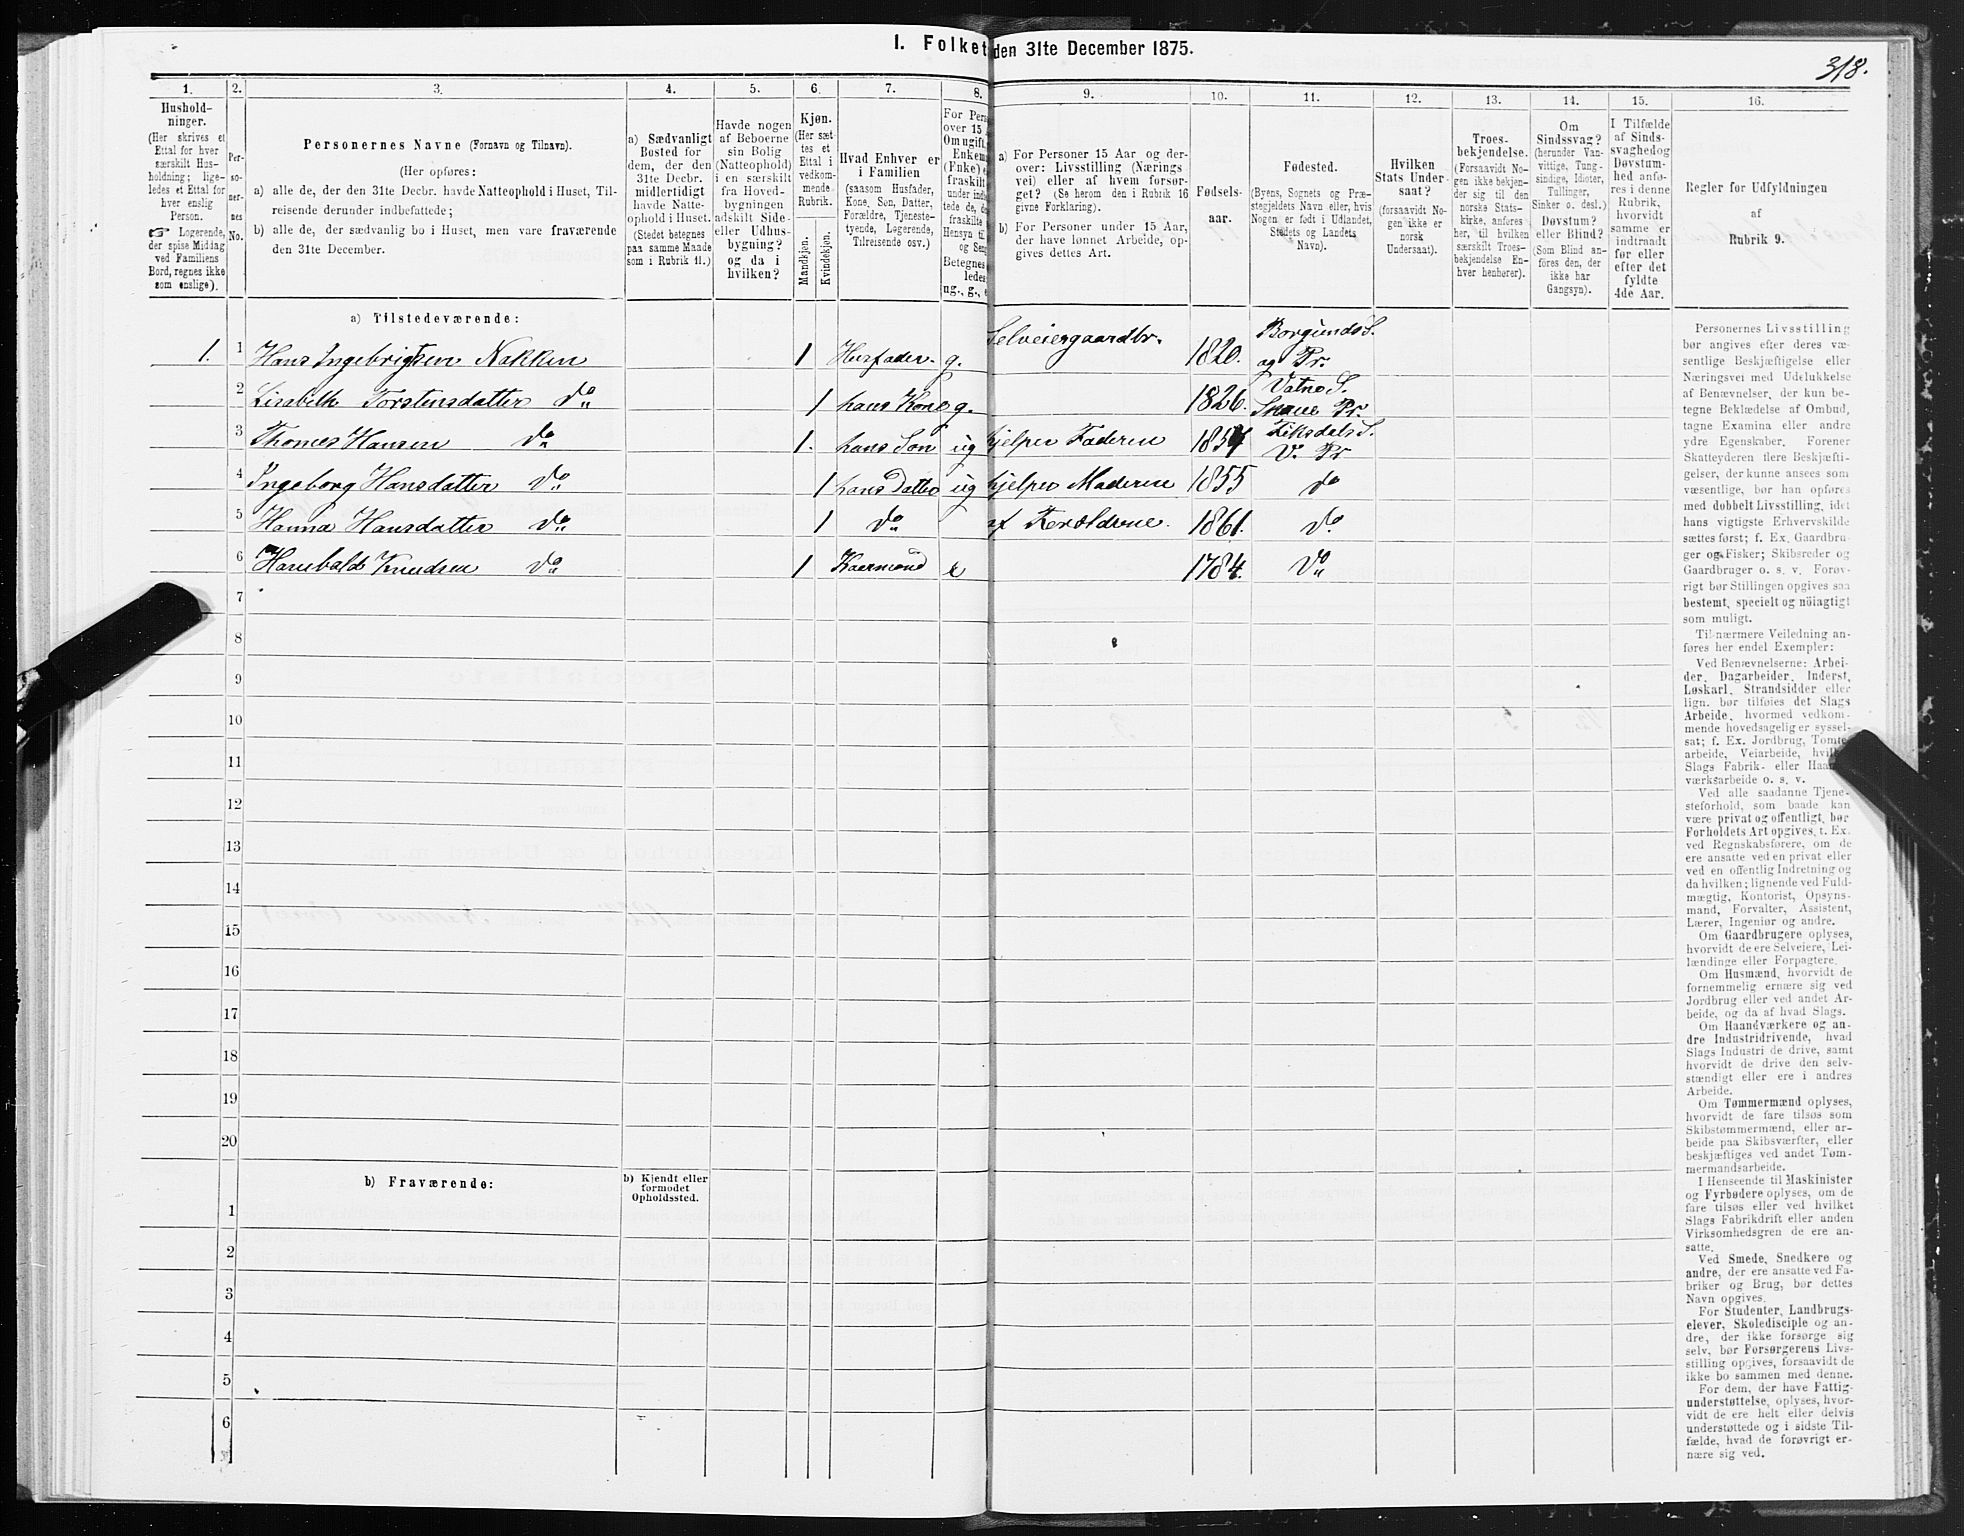 I. Folket den 31te December 1875.
318.
1. 2. 3. 4. 5. 6. 7. 8. 9. 10. 11. 12. 13. 14. 15. 16.
Hushold-
ninger.
(Her skrives et
Ettal for hver
særskilt Hus-
holdning; lige-
ledes et Ettal for
hver enslig
Person.
☞ Logerende,
der spise Middag
ved Familiens
Bord, regnes ikke
som enslige).
Per-
so-
ner-
nes
No.
Personernes Navne (Fornavn og Tilnavn).
(Her opføres:
a) alle de, der den 31te Decbr. havde Natteophold i Huset, Til-
reisende derunder indbefattede;
b) alle de, der sædvanlig bo i Huset, men vare fraværende
den 31te December.
a) Sædvanligt
Bosted for
dem, der den
31te Decbr.
midlertidigt
havde Natte-
ophold i Huset.
(Stedet betegnes
paa samme Maade
som i Rubrik 11.)
Havde nogen
af Beboerne
sin Bolig
(Natteophold)
i en særskilt
fra Hoved-
bygningen
adskilt Side-
eller Udhus-
bygning?
og da i
hvilken?
Kjøn.
(Her sæt-
tes et
Ettal i
vedkom-
mende
Rubrik.
Mandkjøn.
Kvindekjøn.
Hvad Enhver er
i Familien
(saasom Husfader,
Kone, Søn, Datter,
Forældre, Tjeneste-
tyende, Logerende,
Tilreisende osv.)
For Pers
over 15
Om ugift,
Enkem
(Enke) e
fraskilt
under indbe
tede de, d
fraskilte
Hensyn til
og Seng
Betegnes
ledes
ug., g., e
a) For Personer 15 Aar og der-
over: Livsstilling (Nærings
vei) eller af hvem forsør-
get? (Se herom den i Rubrik 16
givne Forklaring).
b) For Personer under 15 Aar,
der have lønnet Arbeide, op-
gives dettes Art.
Fødsels-
aar.
Fødested.
(Byens, Sognets og Præ-
stegjeldets Navn eller, hvis
Nogen er født i Udlandet,
Stedets og Landets
Navn).
Hvilken
Stats Under-
saat?
(forsaavidt No-
gen ikke er
norsk
Undersaat).
Troes-
bekjendelse.
(Forsaavidt No-
gen ikke bekjen-
der sig til den
norske Stats-
kirke, anføres
her, til hvilken
særskilt Troes-
bekjendelse En-
hver henhører).
Om
Sindssvag?
(herunder Van-
vittige, Tung-
sindige, Idioter,
Tullinger,
Sinker o. desl.)
Døvstum?
eller Blind?
(Som Blind an-
føres den, der
ikke har
Gangsyn).
I Tilfælde
af Sinds-
svaghed og
Døvstum-
hed anfø-
res i denne
Rubrik,
hvorvidt
samme er
indtraadt
før eller
efter det
fyldte
4de Aar.
Regler for Udfyldningen
af
Rubrik 9.
a) Tilstedeværende:
1. 1 Hans Ingebrigtsen Nakken 1 Husfader. g. Selveiergaardbr. 1820. Borgunds S.
og Pr.
2 Lisabeth Torstensdatter Do 1 hans Kone g. 1826. Vatne S.
Skaue Pr.
3 Thomes Hansen Do 1. hans Søn ug hjelper Faderen 1857 Fiksdals S.
V. Pr
4 Ingeborg Hansdatter Do 1 hans Datter ug hjelper Moderen 1855 do
5 Hanna Hansdatter Do 1 Do af Forældrene. 1861. Do
6 Knudsen Do 1 Kaarmand e 1784. Do
7
8
9
10
11
12
13
14
15
16
17
18
19
20
b) Fraværende:
b) Kjendt eller
formodet
Opholdssted.
1
2
3
4
5
6
Personernes Livsstilling
bør angives efter deres væ-
sentlige Beskjæftigelse eller
Næringsvei med Udelukkelse
af Benævnelser, der kun be-
tegne Beklædelse af Ombud,
tagne Examina eller andre
ydre Egenskaber. Forener
Skatteyderen flere Beskjæfti-
gelser, der kunne ansees som
væsentlige, bør han opføres
med dobbelt Livsstilling, idet
hans vigtigste Erhvervskilde
sættes først; f. Ex. Gaardbru-
ger og Fisker; Skibsreder og
Gaardbruger o. s. v. Forøv-
rigt bør Stillingen opgives saa
bestemt, specielt og nöiagtigt
som muligt.
Til nærmere Veiledning an-
føres her endel Exempler:
Ved Benævnelserne: Arbei-
der, Dagarbeider, Inderst,
Løskarl, Strandsidder eller
lign. bør tilføies det Slags
Arbeide, hvormed vedkom-
mende hovedsagelig er syssel-
sat; f. Ex. Jordbrug, Tomte-
arbeide, Veiarbeide, hvilket
Slags Fabrik- eller Haand-
værksarbeide o. s. v.
Ved alle saadanne Tjene-
steforhold, som baade kan
være privat og offentligt, bør
Forholdets Art opgives, t. Ex.
ved Regnskabsførere, om de
ere ansatte ved en privat eller
ved en offentlig Indretning og
da hvilken; lignende ved Fuld-
mægtig, Kontorist, Opsyns-
mand, Forvalter, Assistent,
Lærer, Ingeniør og andre.
Om Gaardbrugere oplyses,
hvorvidt de ere Selveiere, Lei-
lændinge eller Forpagtere.
Om Husmænd, hvorvidt de
fornemmelig ernære sig ved
Jordbrug eller ved andet Ar-
beide, og da af hvad Slags.
Om Haandværkere og an-
dre Industridrivende, hvad
Slags Industri de drive, samt
hvorvidt de drive den selv-
stændigt eller ere i andres
Arbeide.
Om Tømmermænd oplyses,
hvorvidt de fare tilsøs som
Skibstømmermænd, eller ar-
beide paa Skibsværfter, eller
beskjæftiges ved andet Tøm-
mermandsarbeide.
I Henseende til Maskinister
og Fyrbødere oplyses, om de
fare tilsøs eller ved hvilket
Slags Fabrikdrift eller anden
Virksomhedsgren de ere an-
satte.
Ved Smede, Snedkere og
andre, der ere ansatte ved Fa-
briker og Brug, bør dettes
Navn opgives.
For Studenter, Landbrugs-
elever, Skoledisciple og an-
dre, der ikke forsørge sig
selv, bør Forsørgerens Livs-
stilling opgives, forsaavidt de
ikke bo sammen med denne.
For dem, der have Fattig-
understøttelse, oplyses, hvor-
vidt de ere helt eller delvis
understøttede og i sidste Til-
fælde, hvad de forøvrigt er-
nære sig ved.